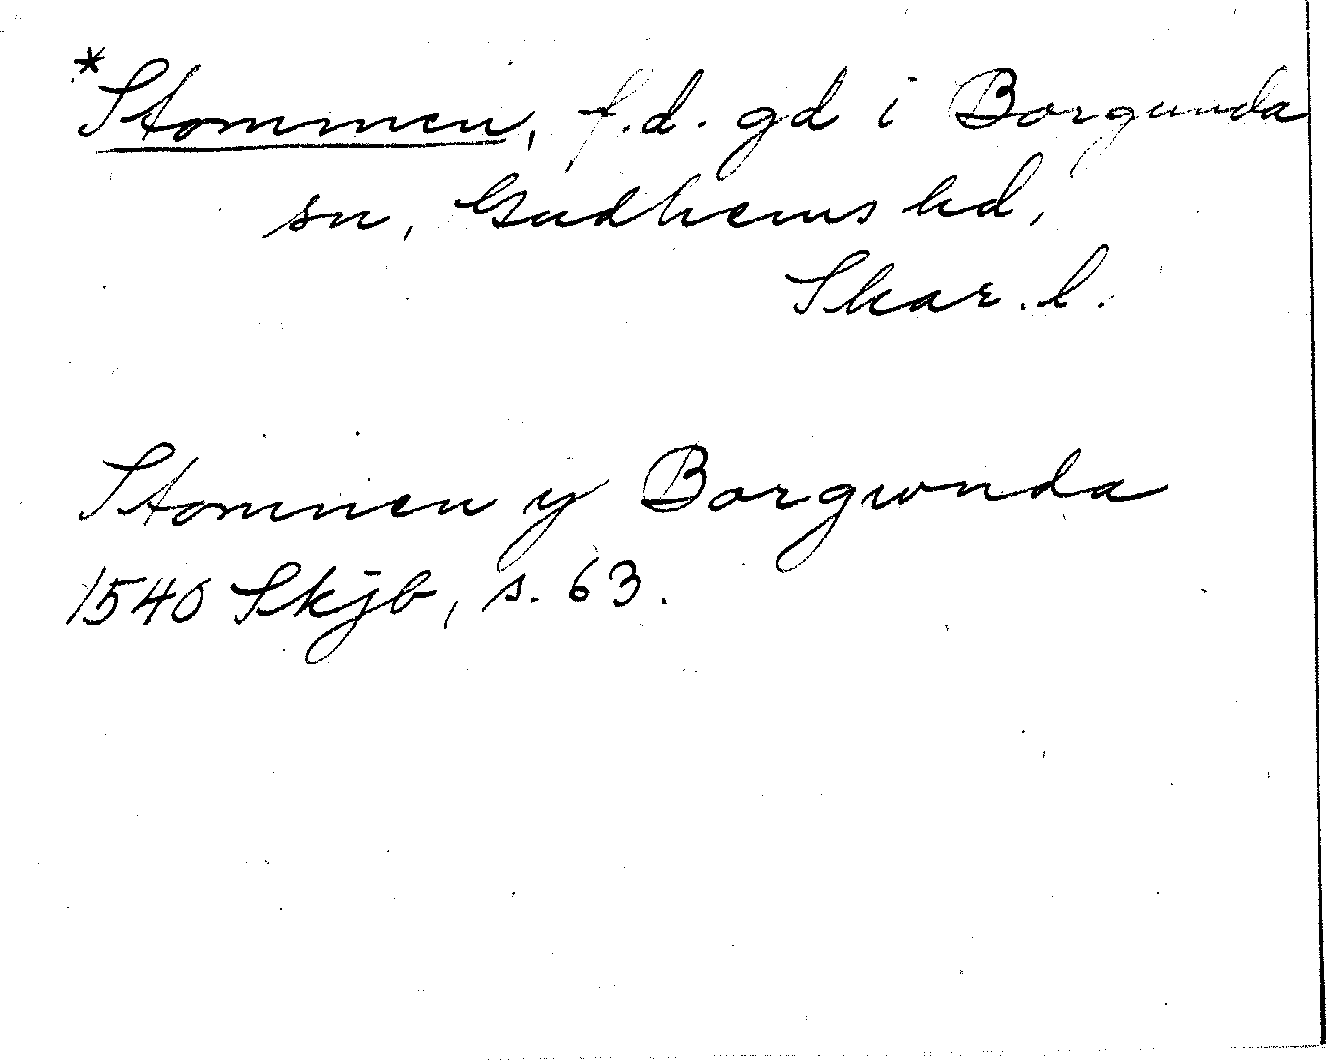 *Stommen, f.d. gd i Borgunda
sn, Gudhems hd,
Skar. l.
Stommen y Borgwnda
1540 Skjb, s. 63.